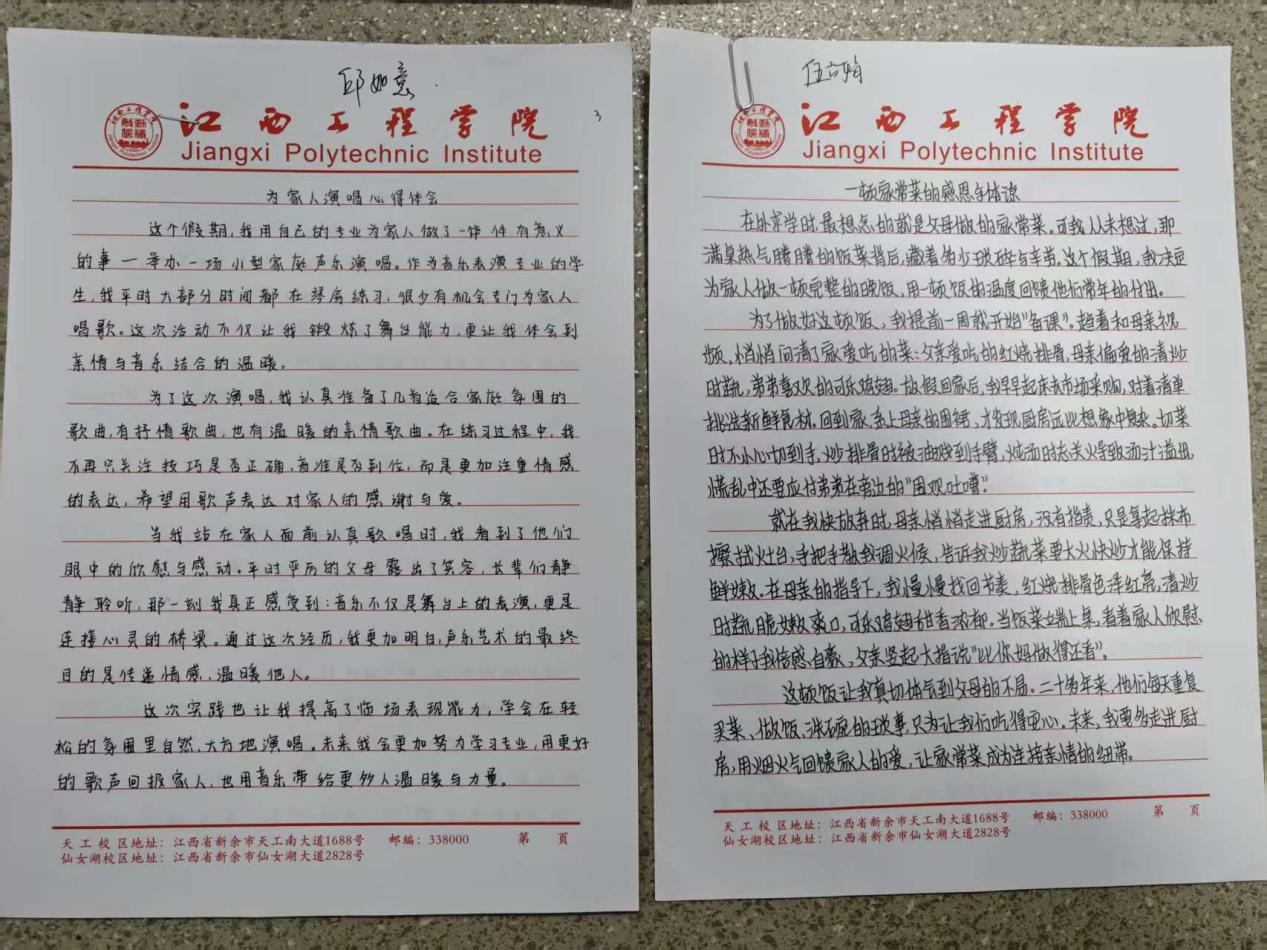 邱如意
江西工程学院
3
Jiangxi Polytechnic Institute
为家人演唱心得体会
这个假期，我用自己的专业为家人做了一件有意义
的事一举办一场小型家庭声乐演唱。作为音乐表演专业的学
生，我平时大部分时间都在琴房练习，很少有机会专门为家人
唱歌。这次活动不仅让我锻炼了舞台能力，更让我体会到
亲情与音乐结合的温暖。
为了这次演唱，我认真准备了几首适合家庭氛围的
歌曲，有抒情歌曲，也有温暖的亲情歌曲。在练习过程中，我
不再只关注技巧是否正确，音准是否到位，而是更加注重情感
的表达，希望用歌声表达对家人的感谢与爱。
当我站在家人面前认真歌唱时，我看到了他们
眼中的欣慰与感动。平时严厉的父母露出了笑容，长辈们静
静聆听，那一刻我真正感受到：音乐不仅是舞台上的表演，更是
连接心灵的桥梁。通过这次经历，我更加明白，声乐艺术的最终
目的是传递情感，温暖他人。
这次实践也让我提高了临场表现能力，学会在轻
松的氛围里自然、大方地演唱。未来我会更加努力学习专业，用更好
的歌声回报家人，也用音乐带给更多人温暖与力量。
天工校区地址：江西省新余市天工南大道1688号 邮编：338000 第 页
仙女湖校区地址：江西省新余市仙女湖大道2828号
江西工程学院
Jiangxi Polytechnic Institute
一顿家常菜的感恩与体谅
在外求学时，最想念的就是父母做的家常菜。可我从未想过，那
满桌热气腾腾的饭菜背后，藏着多少琐碎与辛劳。这个假期，我决定
为家人做一顿完整的晚饭，用一顿饭的温度回馈他们常年的付出。
为了做好这顿饭，我提前一周就开始“备课”。趁着和母亲视
频，悄悄问清了家爱吃的菜：父亲爱吃的红烧排骨，母亲偏爱的清炒
时蔬，弟弟喜欢的可乐鸡翅。放假回家后，我早早起床去市场采购，对着清单
挑选新鲜食材。回到家，系上母亲的围裙，才发现厨房远比想象中复杂。切菜
时不小心切到手，炒排骨时被油溅到手臂，炖汤时忘关火导致汤汁溢出
慌乱中还要应付弟弟在旁边的“围观吐嘈”。
就在我快放弃时，母亲悄悄走进厨房，没有指责，只是拿起抹布
擦拭灶台，手把手教我调火候，告诉我炒蔬菜要大火快炒才能保持
鲜嫩。在母亲的指导下，我慢慢找回节奏，红烧排骨色泽红亮，清炒
时蔬脆嫩爽口，可乐鸡翅甜香浓郁。当饭菜端上桌，看着家人欣慰
的样子我倍感自豪，父亲竖起大拇指说“比你妈做得还香”。
这顿饭让我真切体会到父母的不易。二十多年来，他们每天重复
买菜、做饭、洗碗的琐事，只为让我们吃得更心。未来，我要多走进厨
房，用烟火气回馈家人的爱，让家常菜成为连接亲情的纽带。
天工校区地址：江西省新余市天工南大道1688号 邮编：338000 第 页
仙女湖校区地址：江西省新余市仙女湖大道2828号